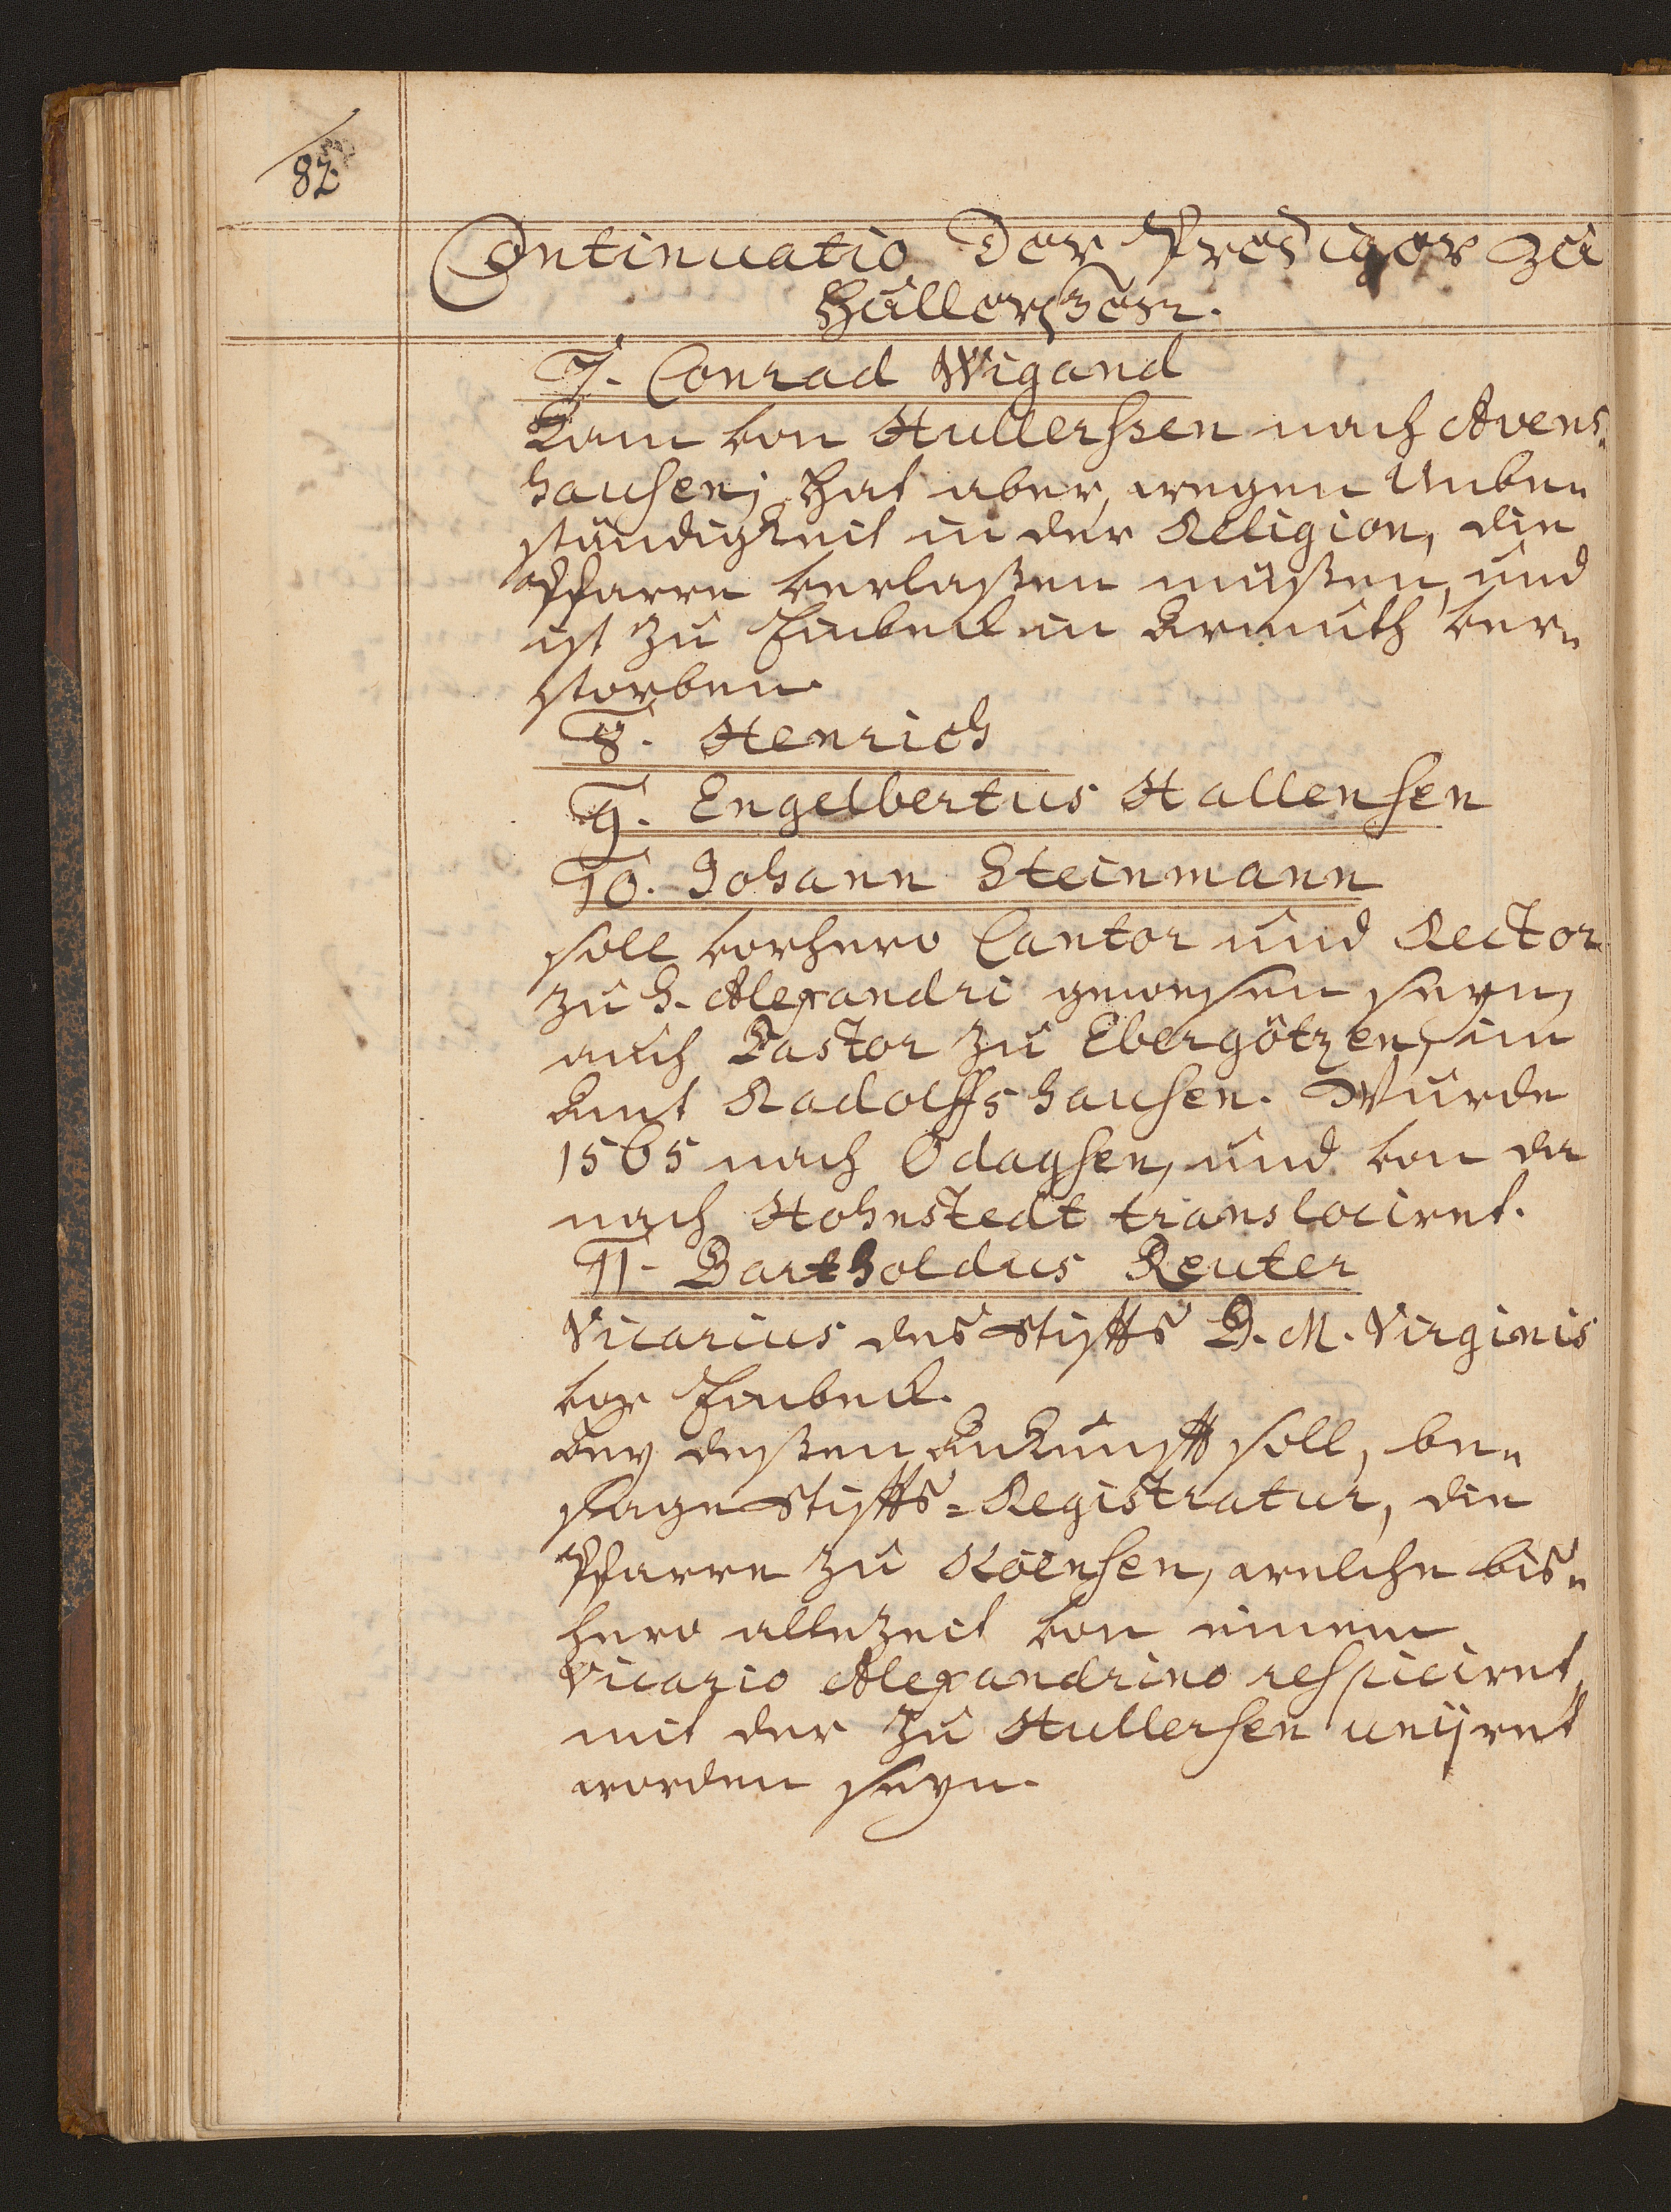 82
Continuatio Der Prediger zu
Hullerßen.
7. Conrad Wigand
Kam von Hullerssen nach Avens-
hausen; hat aber, wegen Unbe-
ständigkeit in der Religion, die
Pfarre verlaßen müßen, und
ist zu Einbeck in Armuth ver-
storben.
8. Henrich
9. Engelbertus Hallensen
10. Johann Steinmann
soll vorhero Cantor und Rector
zu S. Alexandri gewesen seyn,
auch Pastor zu Ebergötzen, im
Amt Radolffshausen. Wurde
1565 nach Odagsen, und von da
nach Hohnstedt translociret.
11. Bartholdus Reuter
Vicarius des Stiffts B. M. Virginis
vor Einbeck.
Bey deßen Ankunfft soll, be-
sage Stiffts-Registratur, die
Pfarre zu Kölnsen, welche bis-
hero allezeit von einem
Vicario Alexandrino respiciret,
mit der zu Hullersen uniiret
worden seyn.